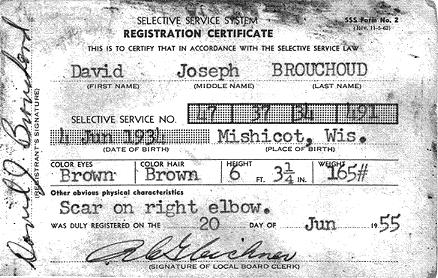 SELECTIVE SERVICE SYSTEM
SSS Form No. 2
REGISTRATION CERTIFICATE
THIS IS TO CERTIFY THAT IN ACCORDANCE WITH THE SELECTIVE SERVICE LAW
David Joseph BROUCHOUD
(FIRST NAME) (MIDDLE NAME) (LAST NAME)
SELECTIVE SERVICE NO. 47 37 34 491
4 Jun 1934 Mishicot, Wis.
(DATE OF BIRTH) (PLACE OF BIRTH)
COLOR EYES COLOR HAIR HEIGHT WEIGHT
Brown Brown 6 FT. 3½ IN. 165#
Other obvious physical characteristics
Scar on right elbow.
WAS DULY REGISTERED ON THE 20 DAY OF Jun 1955
(SIGNATURE OF LOCAL BOARD CLERK)
David J. Brouchoud
(REGISTRANT'S SIGNATURE)